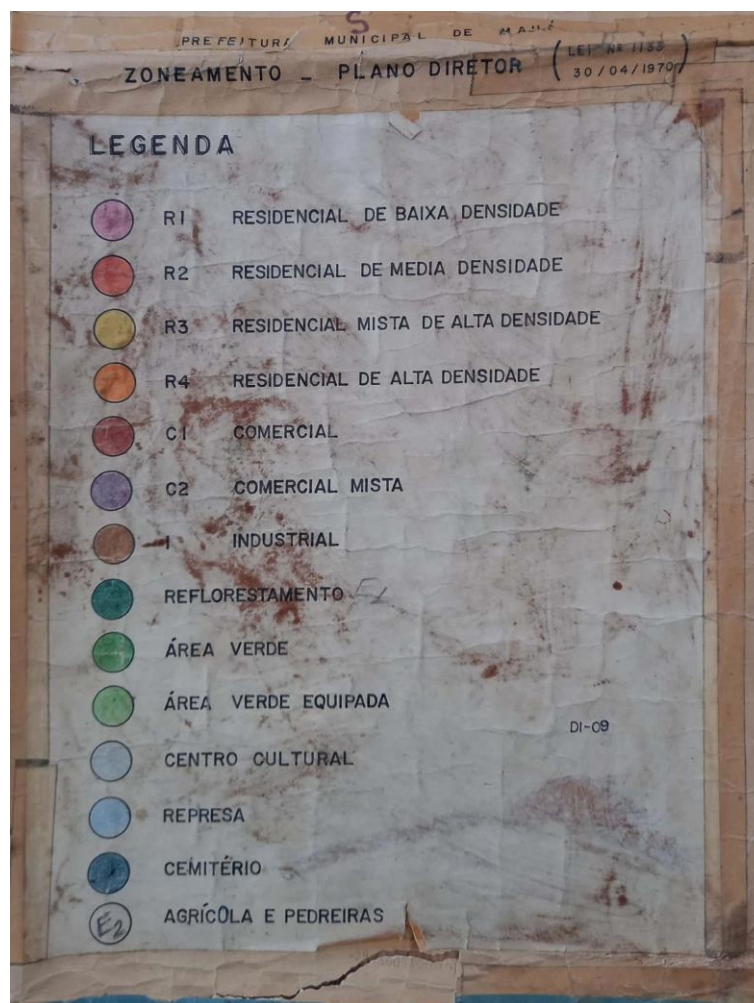 S
PREFEITURA MUNICIPAL DE MAUÁ
ZONEAMENTO - PLANO DIRETOR (LEI Nº 1133
30/04/1970)
LEGENDA
R1 RESIDENCIAL DE BAIXA DENSIDADE
R2 RESIDENCIAL DE MEDIA DENSIDADE
R3 RESIDENCIAL MISTA DE ALTA DENSIDADE
R4 RESIDENCIAL DE ALTA DENSIDADE
C1 COMERCIAL
C2 COMERCIAL MISTA
I INDUSTRIAL
REFLORESTAMENTO
ÁREA VERDE
ÁREA VERDE EQUIPADA
DI-09
CENTRO CULTURAL
REPRESA
CEMITÉRIO
E2 AGRÍCOLA E PEDREIRAS